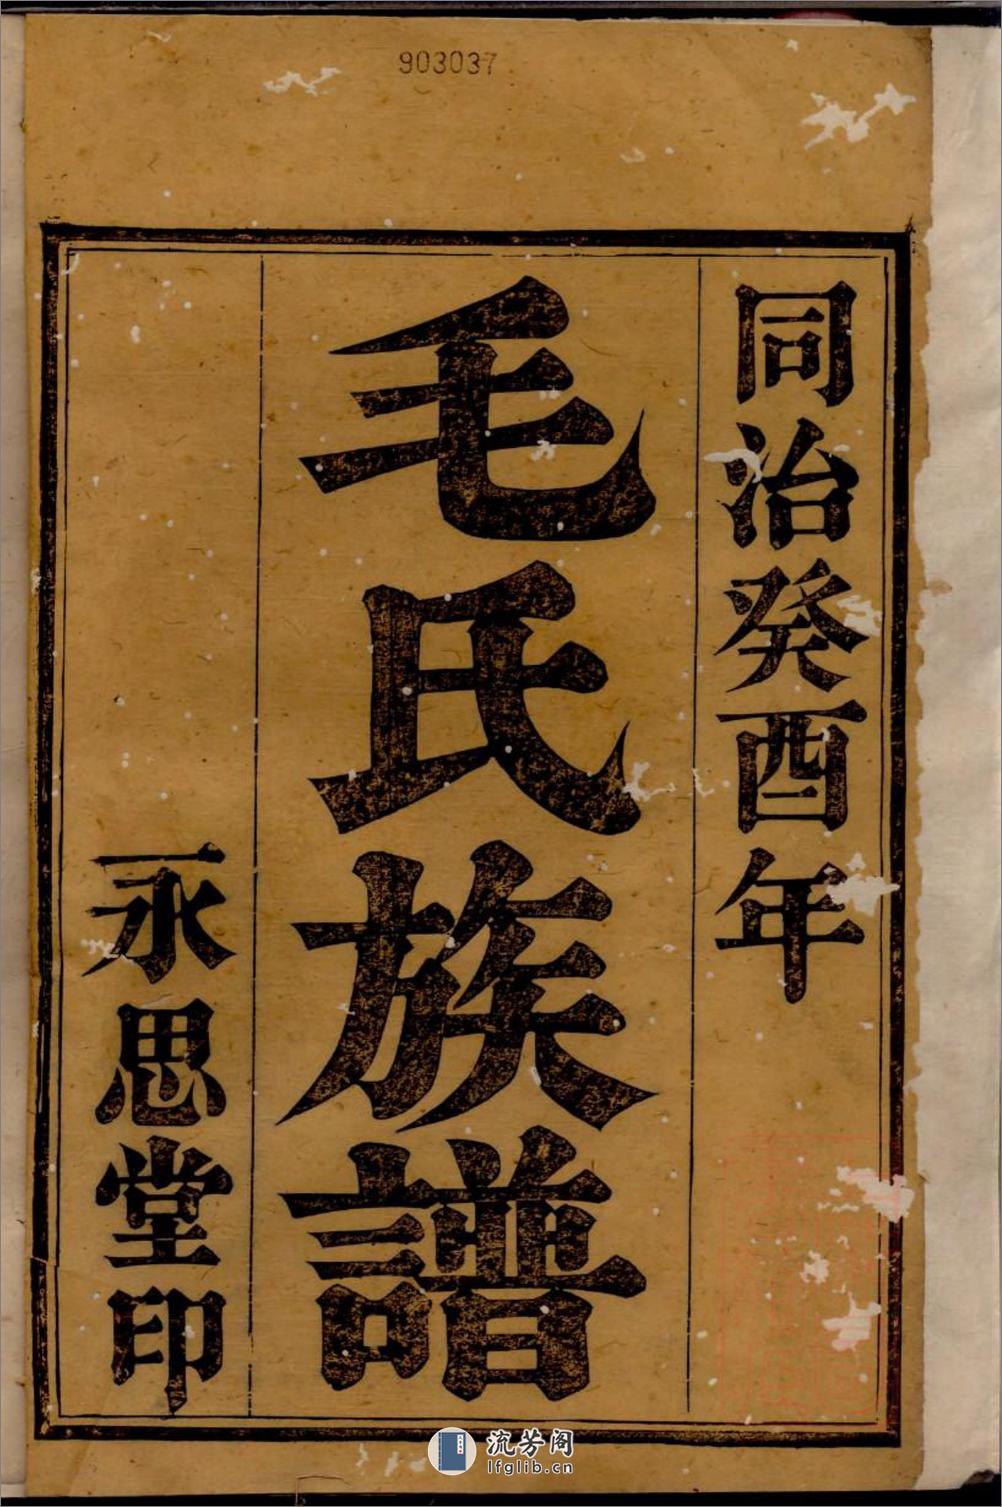 903037
同治癸酉年
毛氏族譜
永思堂印
流芳阁
lfglib.cn